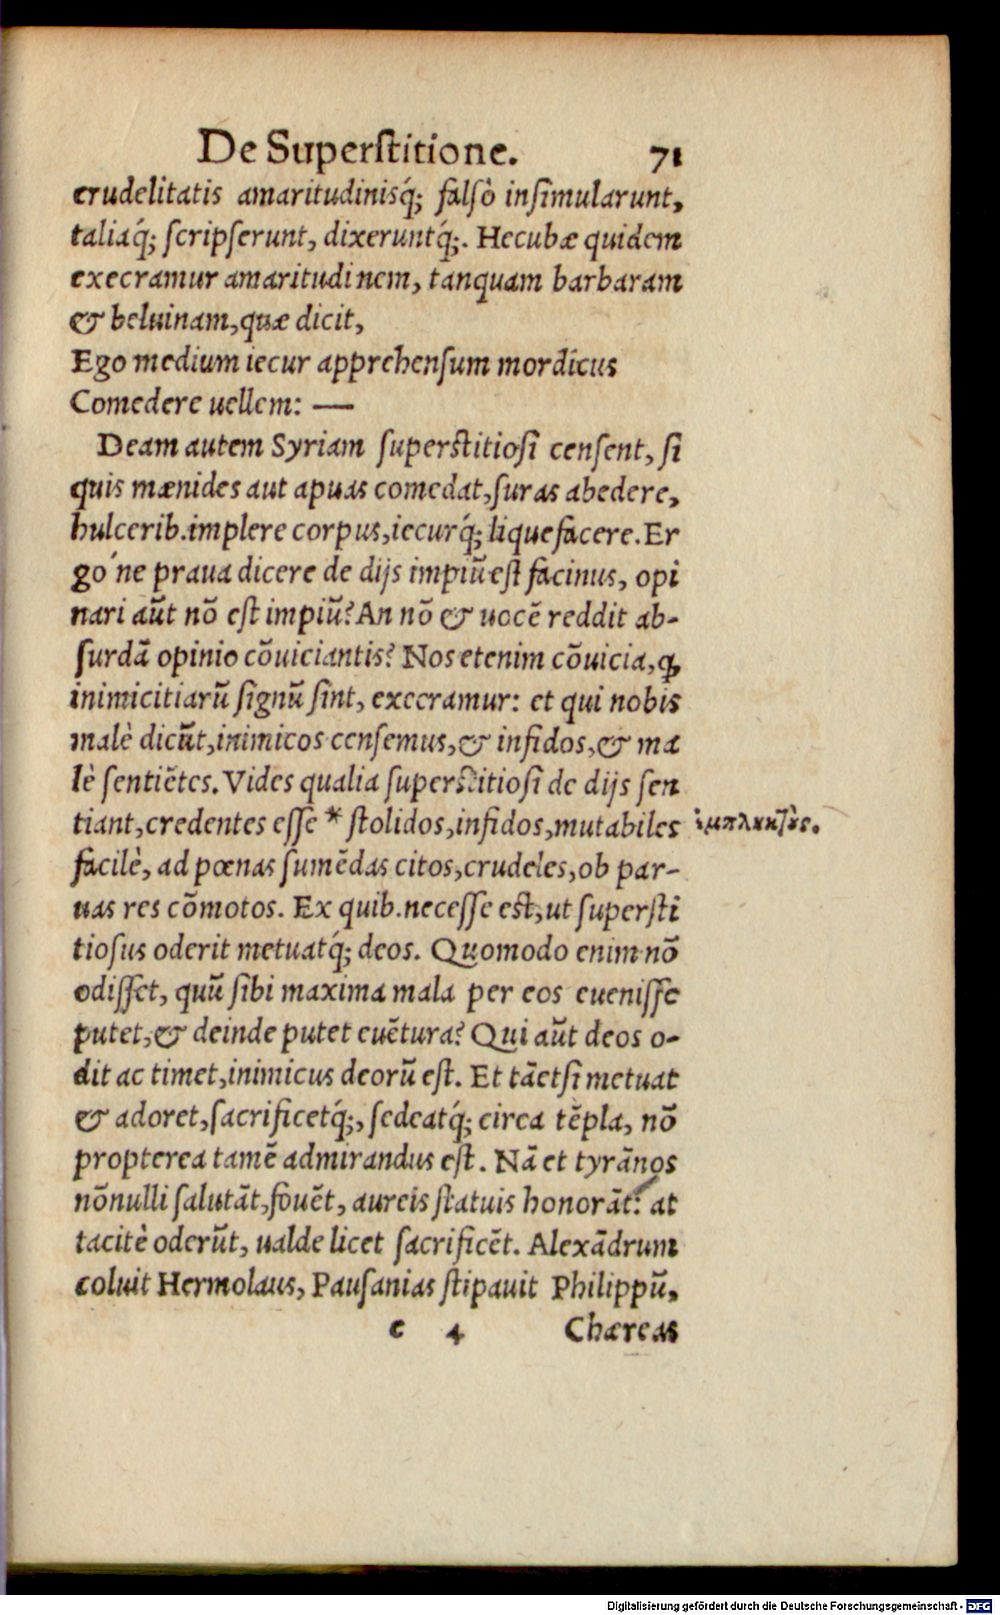 De Superstitione. 71
crudelitatis amaritudinisq́; falsò insimularunt,
taliaq́; scripserunt, dixeruntq́;. Hecubæ quidem
execramur amaritudinem, tanquam barbaram
& beluinam, quæ dicit,
Ego medium iecur apprehensum mordicus
Comedere uellem: —
Deam autem Syriam superstitiosi censent, si
quis mænides aut apuas comedat, suras abedere,
hulcerib. implere corpus, iecurq́; liquefacere. Er
gó ne praua dicere de dijs impiũ est facinus, opi
nari aũt nõ est impiũ? An nõ & uocẽ reddit ab-
surdã opinio cõuiciantis? Nos etenim cõuicia, ꝙ
inimicitiarũ signũ sint, execramur: et qui nobis
malè dicũt, inimicos censemus, & infidos, & ma
lè sentiẽtes. Vides qualia superstitiosi de dijs sen
tiant, credentes esse * stolidos, infidos, mutabiles
ἐμπλήκτȣς.
facilè, ad pœnas sumẽdas citos, crudeles, ob par-
uas res cõmotos. Ex quib. necesse est, ut supersti
tiosus oderit metuatq́; deos. Quomodo enim nõ
odisset, quũ sibi maxima mala per eos euenisse
putet, & deinde putet euẽtura? Qui aũt deos o-
dit ac timet, inimicus deorũ est. Et tãetsi metuat
& adoret, sacrificetq́;, sedeatq́; circa tẽpla, nõ
propterea tamẽ admirandus est. Nã et tyrãnos
nõnulli salutãt, fouẽt, aureis statuis honorãt: at
tacitè oderũt, ualde licet sacrificẽt. Alexãdrum
coluit Hermolaus, Pausanias stipauit Philippũ,
e 4 Chæreas
Digitalisierung gefördert durch die Deutsche Forschungsgemeinschaft - DFG